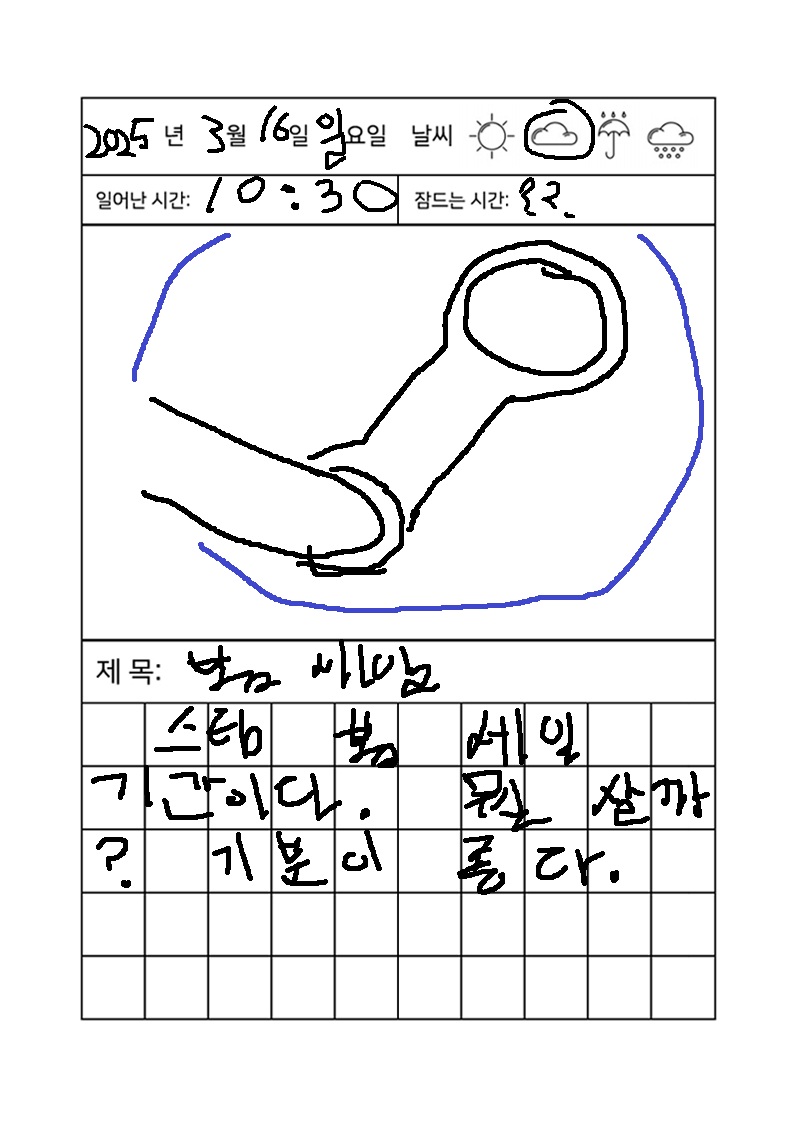 2025 년 3월 16일 일요일 날씨
일어난 시간: 10:30 잠드는 시간:
제 목: 봄 세일
스팀 봄 세일
기간이다. 뭘 살까
? 기분이 좋다.